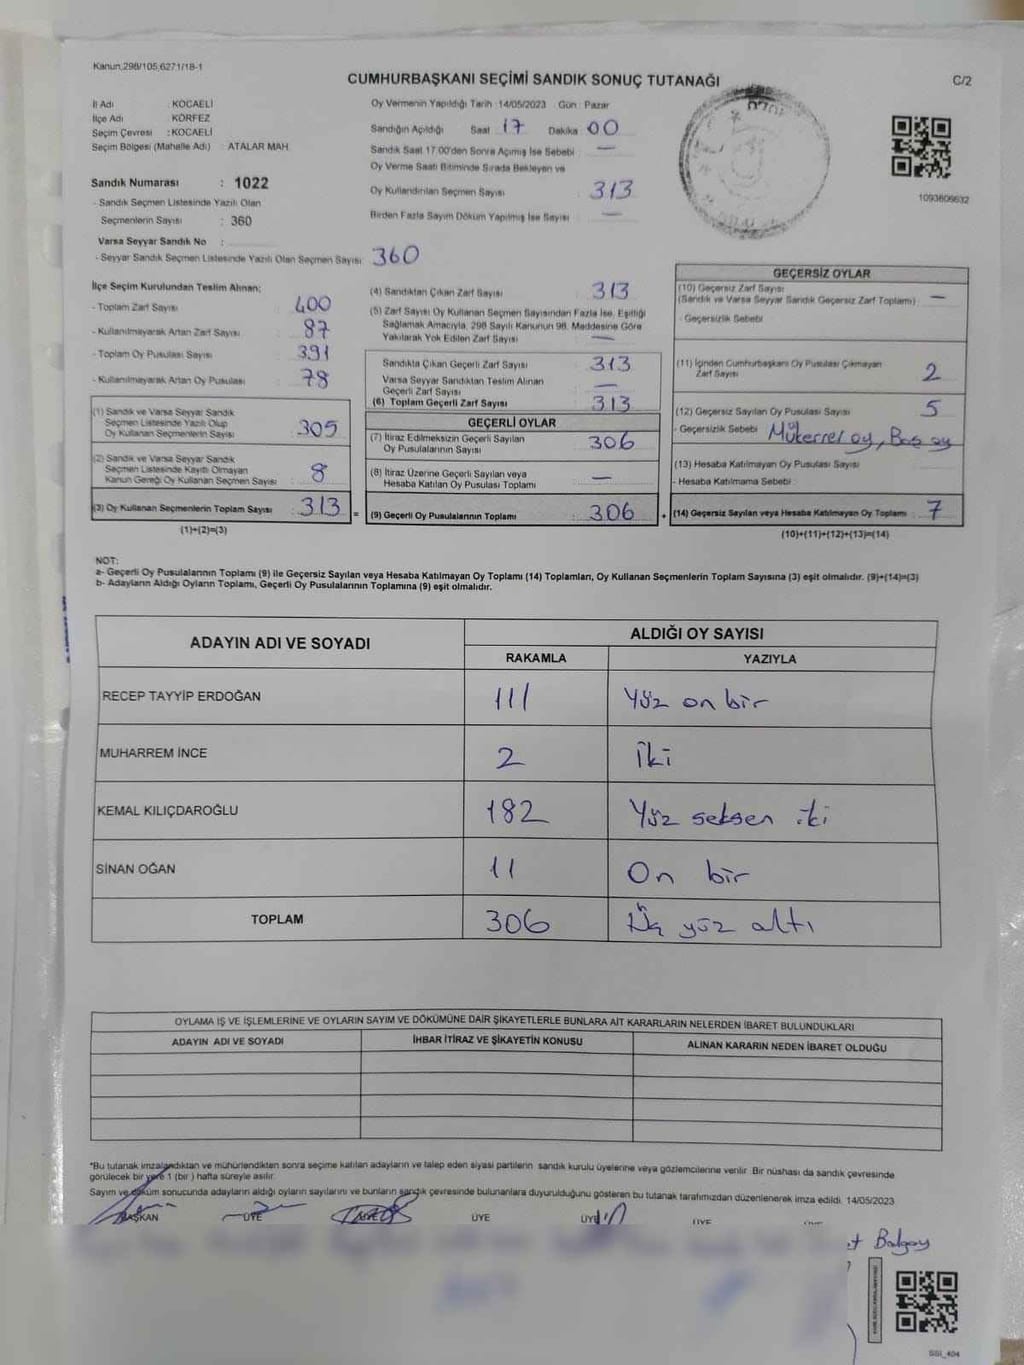 Kanun,298/105,6271/18-1
CUMHURBAŞKANI SEÇİMİ SANDIK SONUÇ TUTANAĞI
C/2
İl Adı : KOCAELİ
İlçe Adı : KÖRFEZ
Seçim Çevresi : KOCAELİ
Seçim Bölgesi (Mahalle Adı) : ATALAR MAH.
Sandık Numarası : 1022
- Sandık Seçmen Listesinde Yazılı Olan
Seçmenlerin Sayısı : 360
Varsa Seyyar Sandık No :
- Seyyar Sandık Seçmen Listesinde Yazılı Olan Seçmen Sayısı: 360
Oy Vermenin Yapıldığı Tarih :14/05/2023 Gün : Pazar
Sandığın Açıldığı Saat 17 Dakika 00
Sandık Saat 17.00'den Sonra Açılmış İse Sebebi : —
Oy Verme Saati Bitiminde Sırada Bekleyen ve
Oy Kullandırılan Seçmen Sayısı : 313
Birden Fazla Sayım Döküm Yapılmış İse Sayısı : —
1093609632
İlçe Seçim Kurulundan Teslim Alınan:
- Toplam Zarf Sayısı : 400
- Kullanılmayarak Artan Zarf Sayısı : 87
- Toplam Oy Pusulası Sayısı : 391
- Kullanılmayarak Artan Oy Pusulası : 78
(1) Sandık ve Varsa Seyyar Sandık
Seçmen Listesinde Yazılı Olup
Oy Kullanan Seçmenlerin Sayısı : 305
(2) Sandık ve Varsa Seyyar Sandık
Seçmen Listesinde Kayıtlı Olmayan
Kanun Gereği Oy Kullanan Seçmen Sayısı : 8
(3) Oy Kullanan Seçmenlerin Toplam Sayısı : 313
(1)+(2)=(3)
(4) Sandıktan Çıkan Zarf Sayısı : 313
(5) Zarf Sayısı Oy Kullanan Seçmen Sayısından Fazla İse, Eşitliği
Sağlamak Amacıyla, 298 Sayılı Kanunun 98. Maddesine Göre
Yakılarak Yok Edilen Zarf Sayısı : —
Sandıkta Çıkan Geçerli Zarf Sayısı : 313
Varsa Seyyar Sandıktan Teslim Alınan
Geçerli Zarf Sayısı : —
(6) Toplam Geçerli Zarf Sayısı : 313
GEÇERLİ OYLAR
(7) İtiraz Edilmeksizin Geçerli Sayılan
Oy Pusulalarının Sayısı : 306
(8) İtiraz Üzerine Geçerli Sayılan veya
Hesaba Katılan Oy Pusulası Toplamı : —
= (9) Geçerli Oy Pusulalarının Toplamı : 306
GEÇERSİZ OYLAR
(10) Geçersiz Zarf Sayısı
(Sandık ve Varsa Seyyar Sandık Geçersiz Zarf Toplamı) : —
- Geçersizlik Sebebi
(11) İçinden Cumhurbaşkanı Oy Pusulası Çıkmayan
Zarf Sayısı : 2
(12) Geçersiz Sayılan Oy Pusulası Sayısı : 5
- Geçersizlik Sebebi : Mükerrer oy, Boş oy
(13) Hesaba Katılmayan Oy Pusulası Sayısı :
- Hesaba Katılmama Sebebi :
+ (14) Geçersiz Sayılan veya Hesaba Katılmayan Oy Toplamı : 7
(10)+(11)+(12)+(13)=(14)
NOT:
a- Geçerli Oy Pusulalarının Toplamı (9) ile Geçersiz Sayılan veya Hesaba Katılmayan Oy Toplamı (14) Toplamları, Oy Kullanan Seçmenlerin Toplam Sayısına (3) eşit olmalıdır. (9)+(14)=(3)
b- Adayların Aldığı Oyların Toplamı, Geçerli Oy Pusulalarının Toplamına (9) eşit olmalıdır.
ADAYIN ADI VE SOYADI
ALDIĞI OY SAYISI
RAKAMLA YAZIYLA
RECEP TAYYİP ERDOĞAN 111 Yüz on bir
MUHARREM İNCE 2 İki
KEMAL KILIÇDAROĞLU 182 Yüz seksen iki
SİNAN OĞAN 11 On bir
TOPLAM 306 Üç yüz altı
OYLAMA İŞ VE İŞLEMLERİNE VE OYLARIN SAYIM VE DÖKÜMÜNE DAİR ŞİKAYETLERLE BUNLARA AİT KARARLARIN NELERDEN İBARET BULUNDUKLARI
ADAYIN ADI VE SOYADI İHBAR İTİRAZ VE ŞİKAYETİN KONUSU ALINAN KARARIN NEDEN İBARET OLDUĞU
*Bu tutanak imzalandıktan ve mühürlendikten sonra seçime katılan adayların ve talep eden siyasi partilerin sandık kurulu üyelerine veya gözlemcilerine verilir. Bir nüshası da sandık çevresinde
görülecek bir yere 1 (bir ) hafta süreyle asılır.
Sayım ve döküm sonucunda adayların aldığı oyların sayılarını ve bunların sandık çevresinde bulunanlara duyurulduğunu gösteren bu tutanak tarafımızdan düzenlenerek imza edildi. 14/05/2023
BAŞKAN ÜYE ÜYE ÜYE ÜYE ÜYE
SSI_404